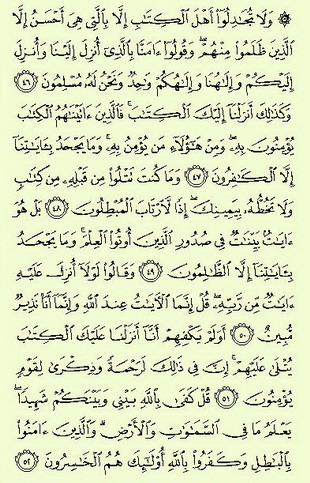 ۞ وَلَا تُجَٰدِلُوٓا۟ أَهْلَ ٱلْكِتَٰبِ إِلَّا بِٱلَّتِى هِىَ أَحْسَنُ إِلَّا
ٱلَّذِينَ ظَلَمُوا۟ مِنْهُمْ ۖ وَقُولُوٓا۟ ءَامَنَّا بِٱلَّذِىٓ أُنزِلَ إِلَيْنَا وَأُنزِلَ
إِلَيْكُمْ وَإِلَٰهُنَا وَإِلَٰهُكُمْ وَٰحِدٌ وَنَحْنُ لَهُۥ مُسْلِمُونَ ٤٦
وَكَذَٰلِكَ أَنزَلْنَآ إِلَيْكَ ٱلْكِتَٰبَ ۚ فَٱلَّذِينَ ءَاتَيْنَٰهُمُ ٱلْكِتَٰبَ
يُؤْمِنُونَ بِهِۦ ۖ وَمِنْ هَٰٓؤُلَآءِ مَن يُؤْمِنُ بِهِۦ ۚ وَمَا يَجْحَدُ بِـَٔايَٰتِنَآ
إِلَّا ٱلْكَٰفِرُونَ ٤٧ وَمَا كُنتَ تَتْلُوا۟ مِن قَبْلِهِۦ مِن كِتَٰبٍ
وَلَا تَخُطُّهُۥ بِيَمِينِكَ ۖ إِذًا لَّٱرْتَابَ ٱلْمُبْطِلُونَ ٤٨ بَلْ هُوَ
ءَايَٰتٌۢ بَيِّنَٰتٌ فِى صُدُورِ ٱلَّذِينَ أُوتُوا۟ ٱلْعِلْمَ ۚ وَمَا يَجْحَدُ
بِـَٔايَٰتِنَآ إِلَّا ٱلظَّٰلِمُونَ ٤٩ وَقَالُوا۟ لَوْلَآ أُنزِلَ عَلَيْهِ
ءَايَٰتٌ مِّن رَّبِّهِۦ ۖ قُلْ إِنَّمَا ٱلْـَٔايَٰتُ عِندَ ٱللَّهِ وَإِنَّمَآ أَنَا۠ نَذِيرٌ
مُّبِينٌ ٥٠ أَوَلَمْ يَكْفِهِمْ أَنَّآ أَنزَلْنَا عَلَيْكَ ٱلْكِتَٰبَ
يُتْلَىٰ عَلَيْهِمْ ۚ إِنَّ فِى ذَٰلِكَ لَرَحْمَةً وَذِكْرَىٰ لِقَوْمٍ
يُؤْمِنُونَ ٥١ قُلْ كَفَىٰ بِٱللَّهِ بَيْنِى وَبَيْنَكُمْ شَهِيدًا ۖ
يَعْلَمُ مَا فِى ٱلسَّمَٰوَٰتِ وَٱلْأَرْضِ ۗ وَٱلَّذِينَ ءَامَنُوا۟
بِٱلْبَٰطِلِ وَكَفَرُوا۟ بِٱللَّهِ أُو۟لَٰٓئِكَ هُمُ ٱلْخَٰسِرُونَ ٥٢